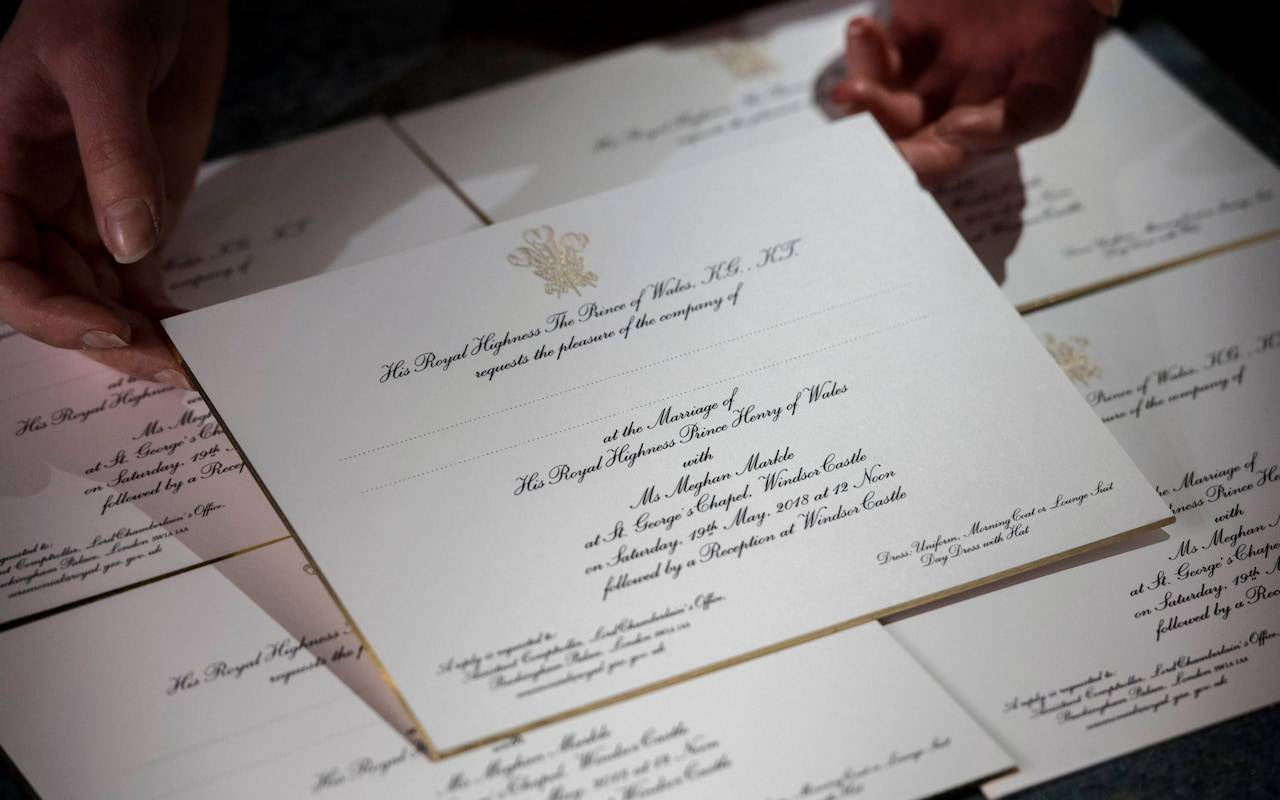 His Royal Highness The Prince of Wales, K.G., K.T.
requests the pleasure of the company of
at the Marriage of
His Royal Highness Prince Henry of Wales
with
Ms Meghan Markle
at St. George's Chapel, Windsor Castle
on Saturday, 19th May, 2018 at 12 Noon
followed by a Reception at Windsor Castle
Dress: Uniform, Morning Coat or Lounge Suit
Day Dress with Hat
A reply is requested to:
Assistant Comptroller, Lord Chamberlain's Office,
Buckingham Palace, London SW1A 1AA
K.G., K.T.
company of
His Royal
His Royal Highness
Ms Megh
at St. George's Cha
on Saturday, 19th
followed by a Recep
requested to:
Comptroller, Lord Chamberlain's Office,
Buckingham Palace, London SW1A 1AA
His Royal Highness
requests the p
His Royal
with
Ms Meghan Markle
Chapel, Windsor Castle
May, 2018 at 12 Noon
Reception at Windsor Castle
Morning Coat or Lounge Suit
Prince of Wales, K.G., K
sure of the company of
the Marriage of
hness Prince He
with
Ms Meghan M
at St. George's Chape
on Saturday, 19th M
followed by a Rece
A reply is requested to:
Assistant Comptroller, Lord Chamberlain's Office,
Buckingham Palace, London SW1A 1AA